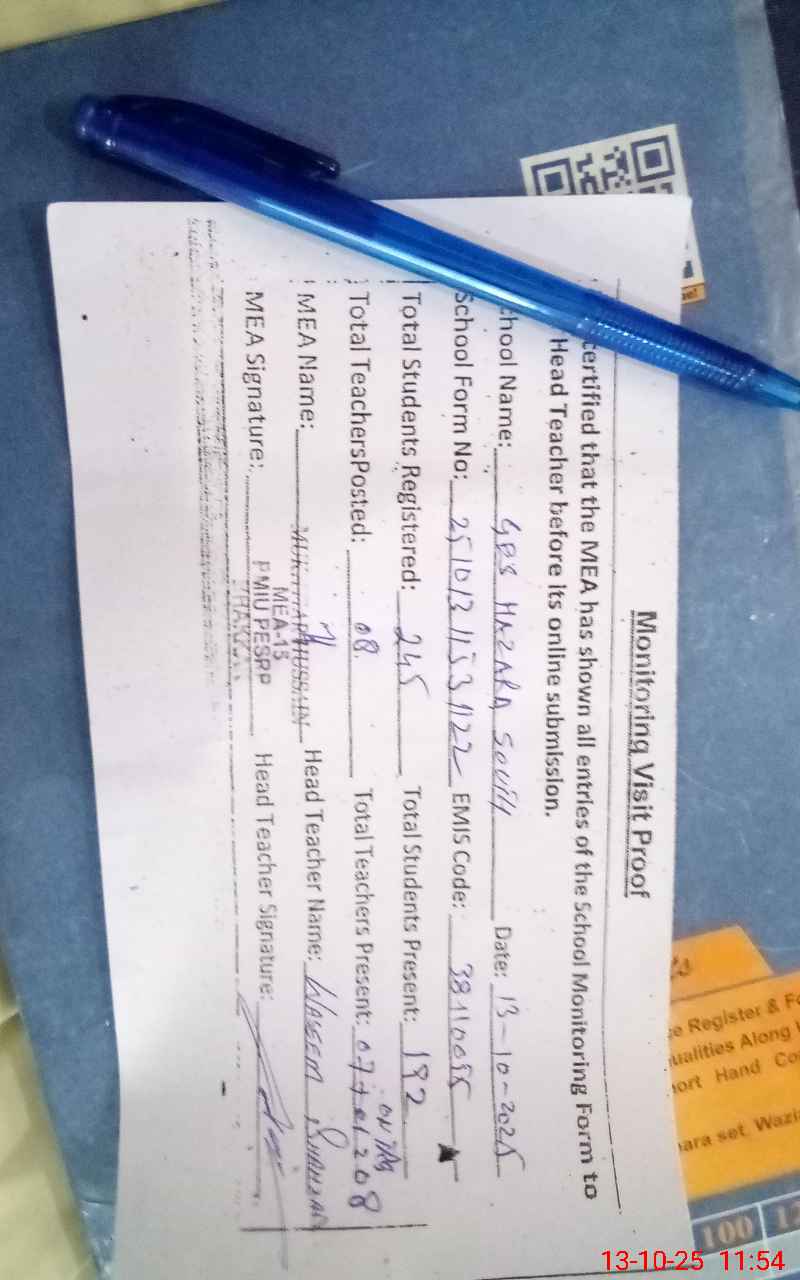 Monitoring Visit Proof
certified that the MEA has shown all entries of the School Monitoring Form to
Head Teacher before its online submission.
chool Name: GPS HAZARA Date: 13-10-2025
School Form No: EMIS Code:
Total Students Registered: 245 Total Students Present: 192
Total TeachersPosted: 08 Total Teachers Present: 07+01=08
MEA Name: MUKHTIAR HUSSAIN Head Teacher Name: WASEEM
MEA-15
MEA Signature: PMIU PESRP Head Teacher Signature:
e Register & Fo
ualities Along
ort Hand Co
ara set. Wazi
100
13-10-25 11:54